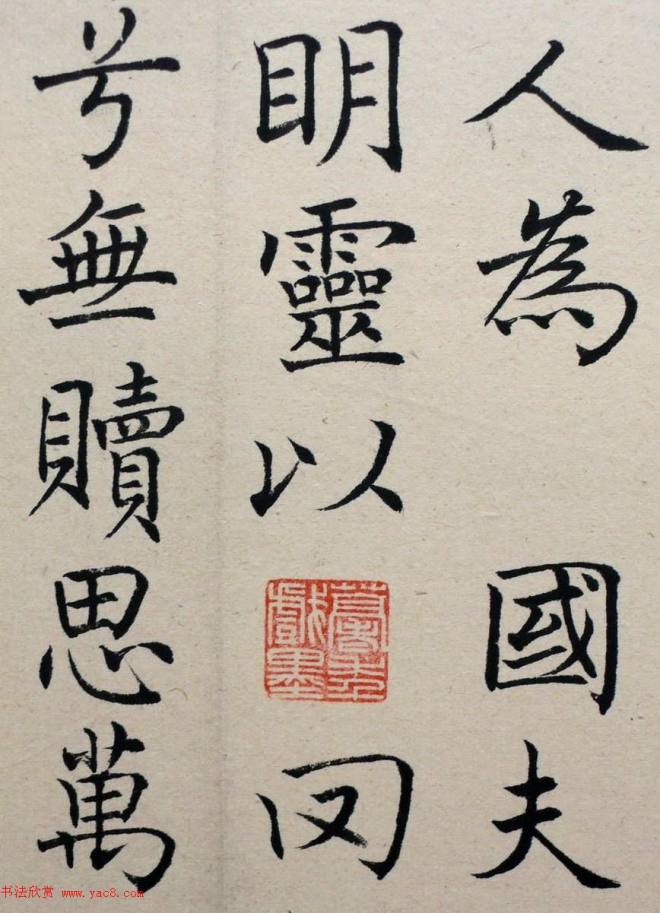 人為 國夫
明靈以
兮無贖思萬
书法欣赏 www.yac8.com